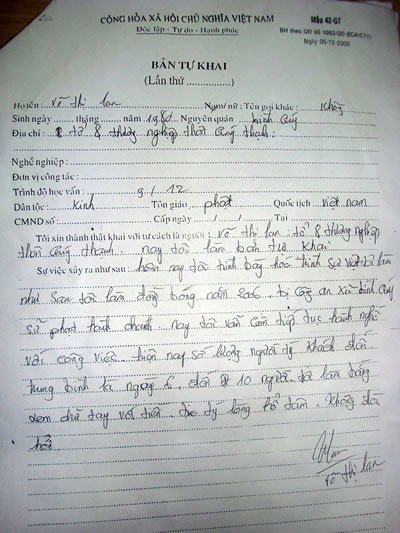 CỘNG HÒA XÃ HỘI CHỦ NGHĨA VIỆT NAM
Độc lập - Tự do - Hạnh phúc
Mẫu 42-GT
BH theo QĐ số 1083/QĐ-BCA(C11)
Ngày 05-12-2000
BẢN TỰ KHAI
(Lần thứ ...............)
Họ tên : Võ thị lan Nam/ nữ : Tên gọi khác : Không
Sinh ngày ...... tháng ...... năm 1980 Nguyên quán bình Quý
Địa chỉ : tổ 8 thường nghiệp thôn Quý thạnh
Nghề nghiệp :
Đơn vị công tác :
Trình độ học vấn : 9 / 12
Dân tộc : Kinh Tôn giáo phật Quốc tịch việt nam
CMND số: Cấp ngày / / Tại
Tôi xin thành thật khai với tư cách là người : Võ thị lan tổ 8 thường nghiệp
thôn Quý thạnh nay tôi làm bản tự Khai
Sự việc xảy ra như sau : hôm nay tôi trình bày sự việt tôi làm
như sau tôi làm bóng năm 2006 bị công an xã bình Quý
sử phạt hành chánh nay tôi vẫn còn tiếp tục hành nghề
với công việc hiện nay số lượng người Khách đến
trung bình là ngày 6 đến 10 người tôi làm bằng
xem chỉ tay với tiền
Võ thị lan